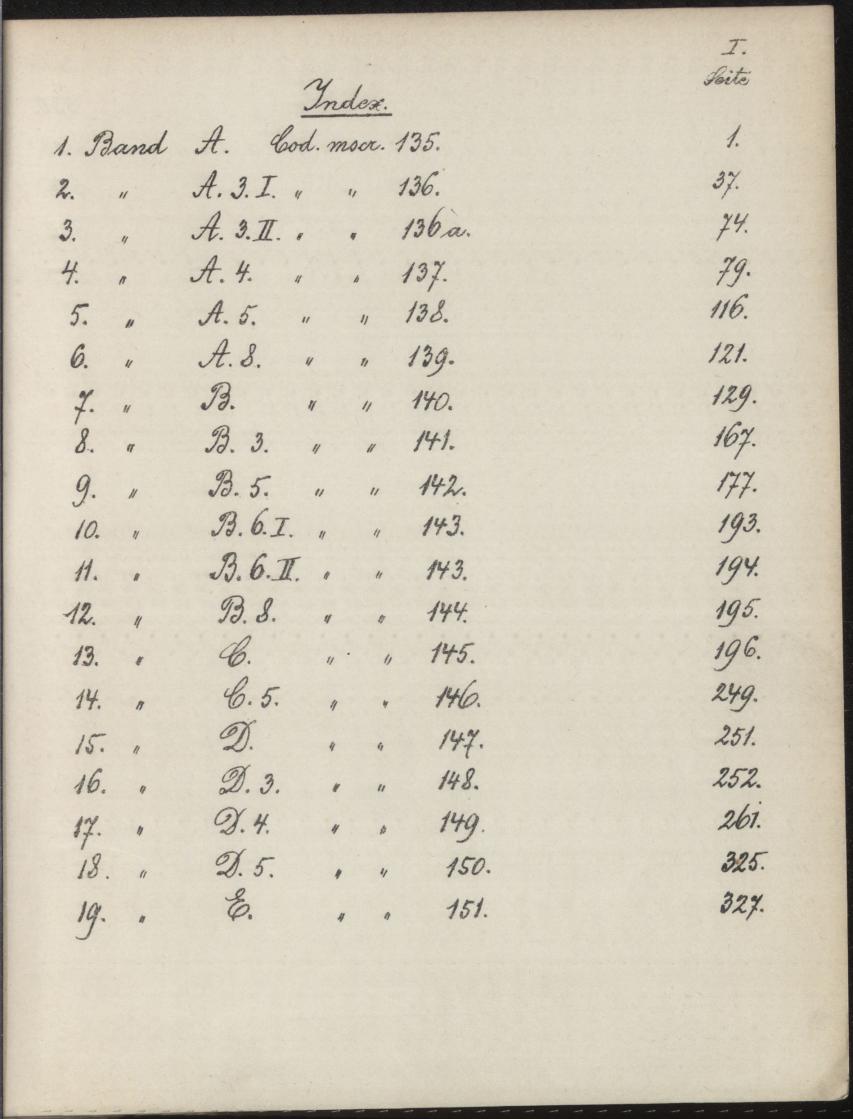 I.
Seite
Index.
1. Band A. Cod. mscr. 135. 1.
2. " A. 3. I. " " 136. 37.
3. " A. 3. II. " " 136a. 74.
4. " A. 4. " " 137. 79.
5. " A. 5. " " 138. 116.
6. " A. 8. " " 139. 121.
7. " B. " " 140. 129.
8. " B. 3. " " 141. 167.
9. " B. 5. " " 142. 177.
10. " B. 6. I. " " 143. 193.
11. " B. 6. II. " " 143. 194.
12. " B. 8. " " 144. 195.
13. " C. " " 145. 196.
14. " C. 5. " " 146. 249.
15. " D. " " 147. 251.
16. " D. 3. " " 148. 252.
17. " D. 4. " " 149. 261.
18. " D. 5. " " 150. 325.
19. " E. " " 151. 327.